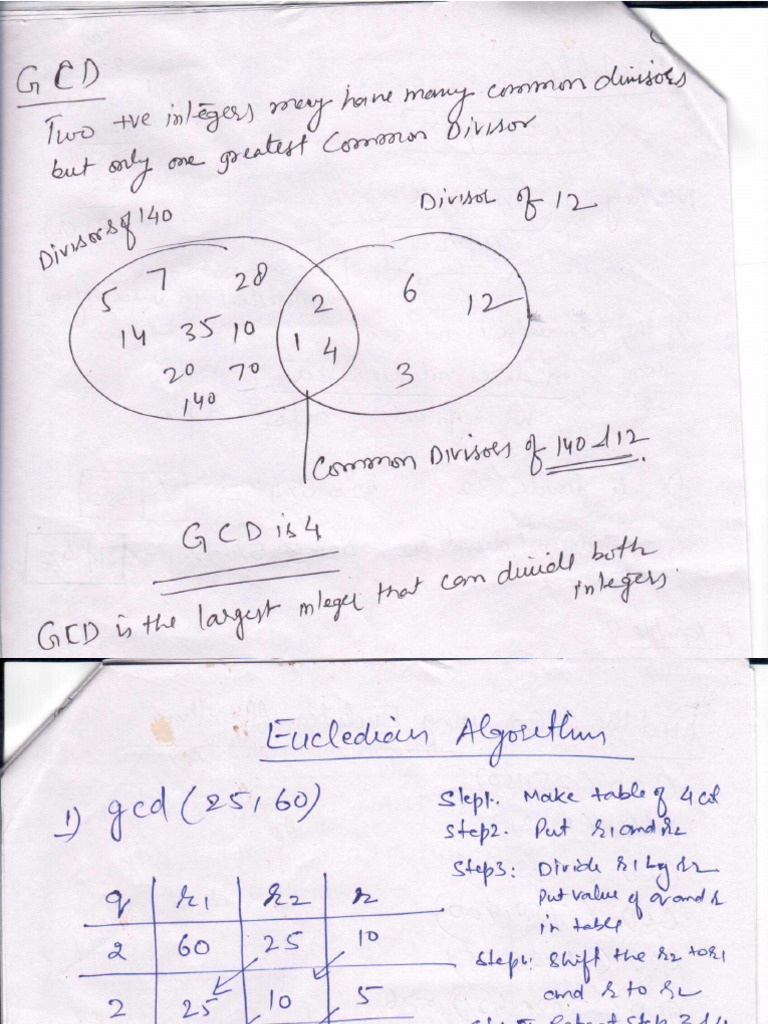 GCD
Two +ve integers may have many common divisors
but only one greatest Common Divisor
Divisors of 140
Divisor of 12
5 7 28 2 6 12
14 35 10 1 4
20 70 3
140
Common Divisors of 140 & 12.
GCD is 4
GCD is the largest integer that can divide both
integers.
Eucledian Algorithm
1) gcd (25, 60)
Step1. Make table of 4 col
Step2. Put r1 and r2
Step3: Divide r1 by r2
Put value of q and r
in table
q r1 r2 r
2 60 25 10
2 25 10 5
Step4: Shift the r2 to r1
and r to r2